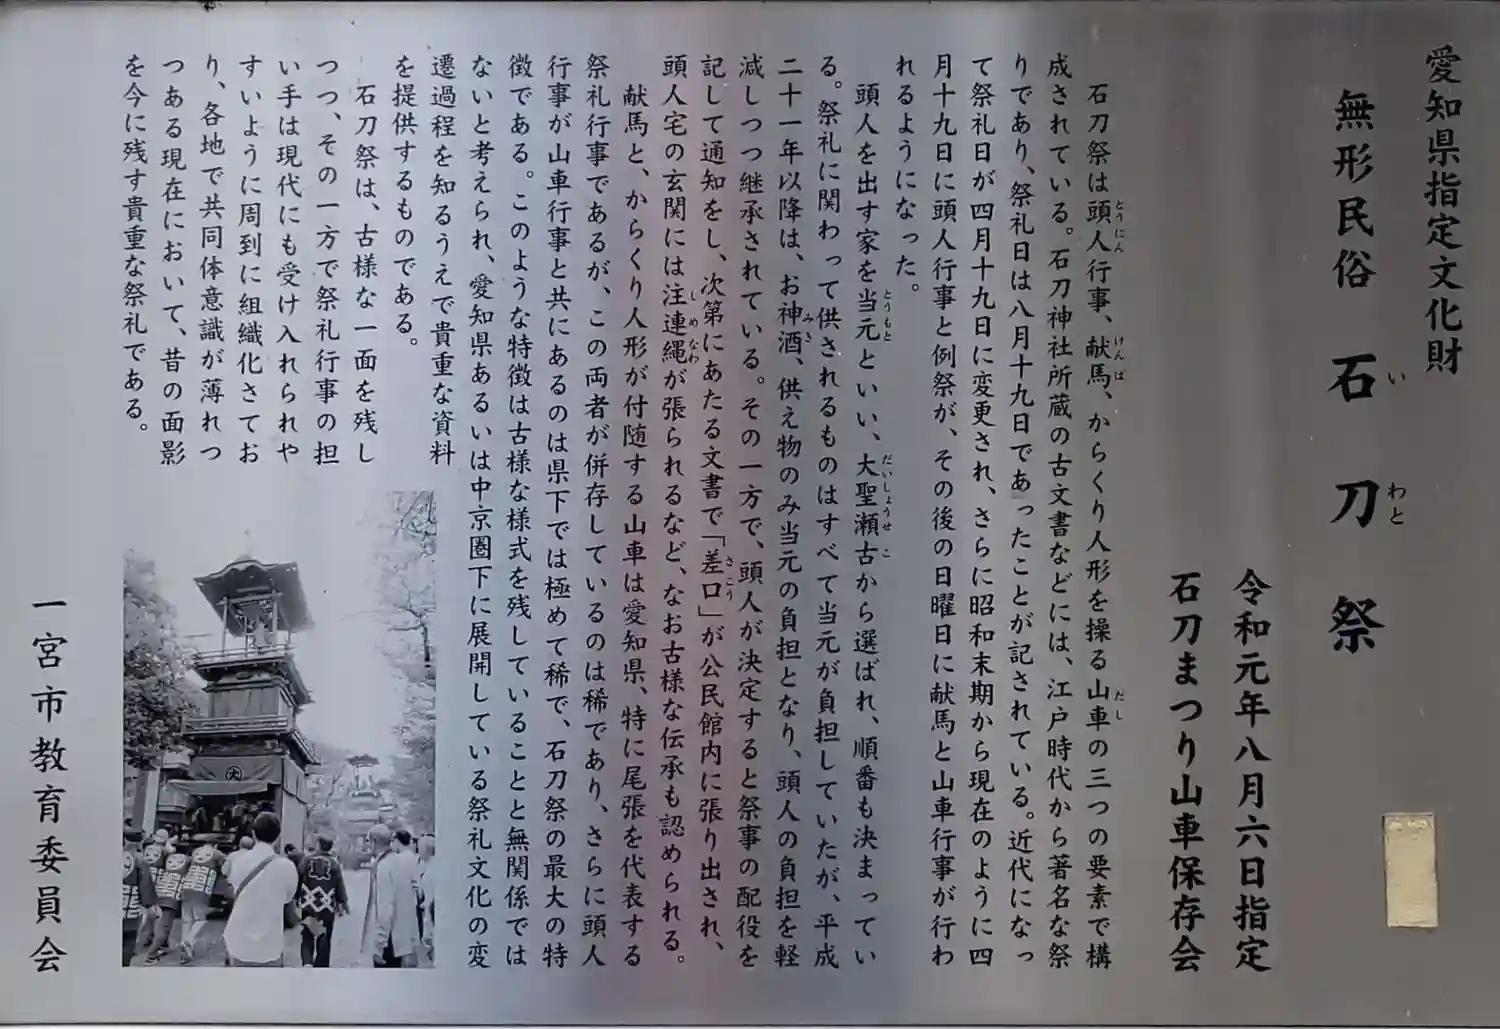 愛知県指定文化財
無形民俗 石刀祭
いわと
令和元年八月六日指定
石刀まつり山車保存会
石刀祭は頭人行事、献馬、からくり人形を操る山車の三つの要素で構
とうにん けんば だし
成されている。石刀神社所蔵の古文書などには、江戸時代から著名な祭
りであり、祭礼日は八月十九日であったことが記されている。近代になっ
て祭礼日が四月十九日に変更され、さらに昭和末期から現在のように四
月十九日に頭人行事と例祭が、その後の日曜日に献馬と山車行事が行わ
れるようになった。
頭人を出す家を当元といい、大聖瀬古から選ばれ、順番も決まってい
とうもと だいしょうせこ
る。祭礼に関わって供されるものはすべて当元が負担していたが、平成
二十一年以降は、お神酒、供え物のみ当元の負担となり、頭人の負担を軽
みき
減しつつ継承されている。その一方で、頭人が決定すると祭事の配役を
記して通知をし、次第にあたる文書で「差口」が公民館内に張り出され、
さこう
頭人宅の玄関には注連縄が張られるなど、なお古様な伝承も認められる。
しめなわ
献馬と、からくり人形が付随する山車は愛知県、特に尾張を代表する
祭礼行事であるが、この両者が併存しているのは稀であり、さらに頭人
行事が山車行事と共にあるのは県下では極めて稀で、石刀祭の最大の特
徴である。このような特徴は古様な様式を残していることと無関係では
ないと考えられ、愛知県あるいは中京圏下に展開している祭礼文化の変
遷過程を知るうえで貴重な資料
を提供するものである。
石刀祭は、古様な一面を残し
つつ、その一方で祭礼行事の担
い手は現代にも受け入れられや
すいように周到に組織化さてお
り、各地で共同体意識が薄れつ
つある現在において、昔の面影
を今に残す貴重な祭礼である。
大
一宮市教育委員会